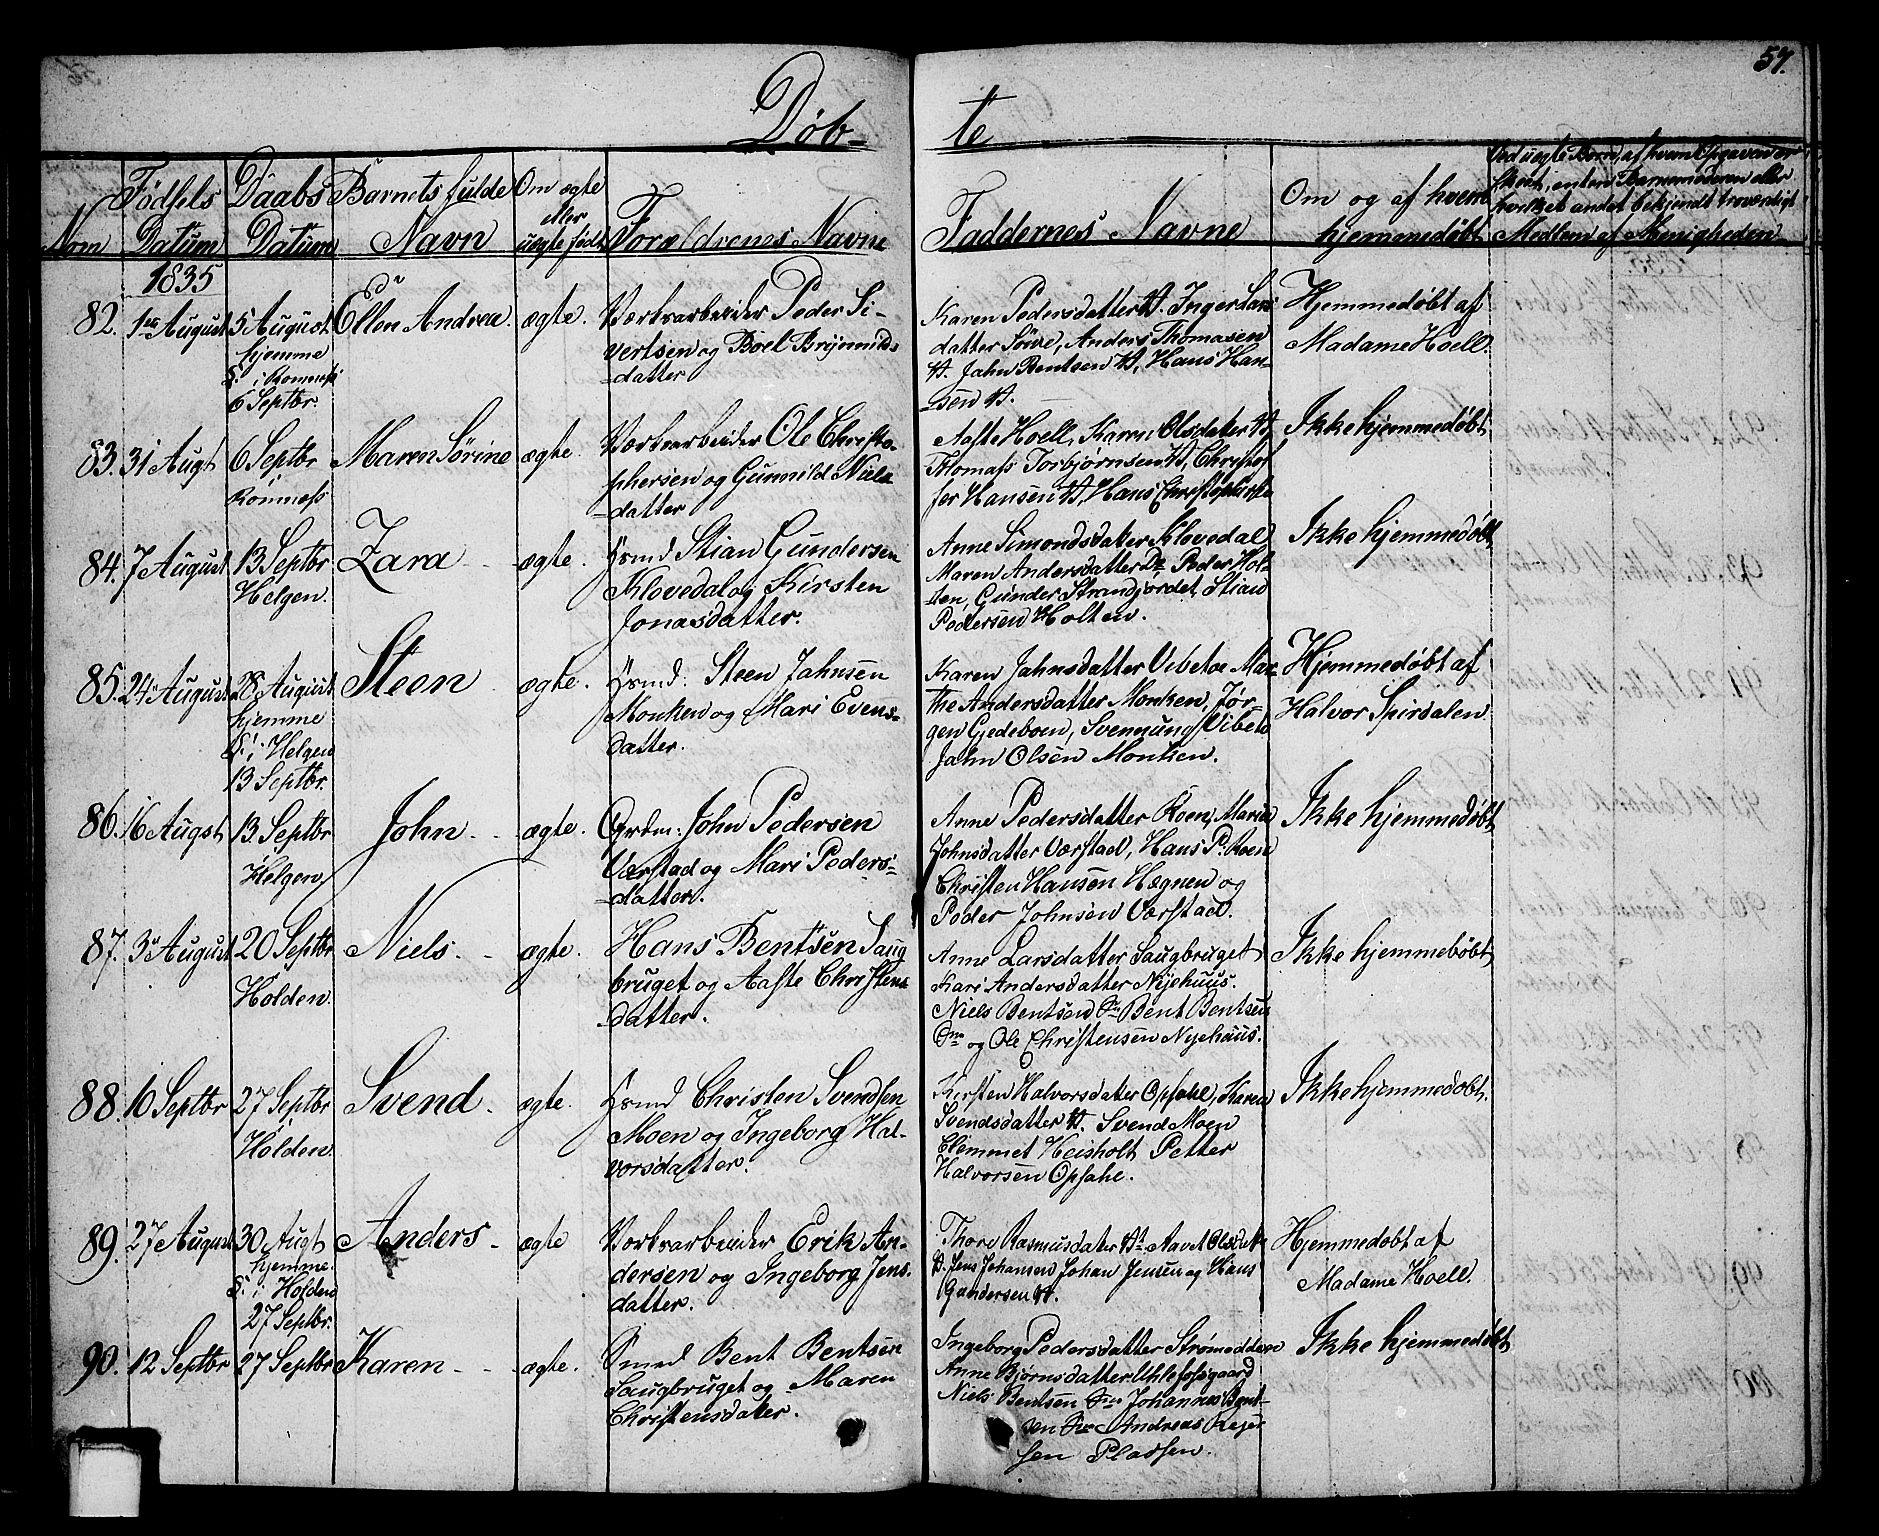 57.
Døb-
te
Num
Fødsels Datum
Daabs Datum
Barnets fulde Navn
Om ægte eller uægte født
Forældrenes Navne
Faddernes Navne
Om og af hvem hjemmedøbt
Ved uægte Børn, af hvem Opgaven er skeet, enten Barnemoderen eller hvilket andet bekjendt troværdigt Medlem af Menigheden
1835
82.
1ste August
5 August
hjemme
i Romnæs
6 Septbr.
Ellen Andrea.
ægte.
Værkarbeider Peder Si-
vertsen og Boel Brynnilds-
-datter
Karen Pedersdatter V. Inger Lars
datter Søve, Anders Thomasen
V. Jahn Bentsen V, Hans Han-
sen V.
Hjemmedøbt af
Madame Hoell.
83.
31 Augt
6 Septbr
Romnæs
Maren Sørine
ægte.
Værkarbeider Ole Christo-
phersen og Gunnild Niels
-datter
Aaste Hoell, Karen Olsdatter V
Thomas Torbjørnsen V, Christof
fer Hansen V, Hans Christophers
Ikke hjemmedøbt
84.
7 August
13 Septbr
Helgen.
Zara
ægte.
Hsmd Stian Gundersen
Klovedal og Kirsten
Jonasdatter.
Anne Simondsdater Klovedal
Maren Andersdatter Do Peder Hol-
ten, Gunder Strandjordet, Stian
Pedersen Holten.
Ikke hjemmedøbt
85.
24 August
28 August
hjemme
i Helgen
13 Septbr.
Steen
ægte.
Hsmd: Steen Jahnsen
Monken og Mari Evens-
datter.
Karen Jahnsdatter Vibetoe Mar-
the Andersdatter Monken, Jør-
gen Gjedeboen, Svennung Vibeto
Jahn Olsen Monken.
Hjemmedøbt af
Halvor Spirdalen
86.
16 Augst
13 Septbr
Helgen
John
ægte.
Grdm: John Pedersen
Værstad og Mari Peders-
-datter.
Anne Pedersdatter Roen, Maria
Johnsdatter Værstad, Hans P. Roen
Christen Hansen Hægnen og
Peder Johnsen Værstad.
Ikke hjemmedøbt
87.
3 August
20 Septbr
Holden
Niels.
ægte.
Hans Bentsen Saug
bruget og Aaste Christens
datter.
Anne Larsdatter Saugbruget
Kari Andersdatter Nyehuus.
Niels Bentsen Bent Bentsen
og Ole Christensen Nyehuus.
Ikke hjemmebøbt
88.
10 Septbr
27 Septbr
Holden
Svend
ægte.
Hsmd Christen Svendsen
Moen og Ingeborg Hal-
vorsdatter.
Kirsten Halvorsdater Opsahl, Karen
Svendsdatter V. Svend Moen
Clemmet Heisholt Petter
Halvorsen Opsahl.
Ikke hjemmedøbt.
89.
27 August
30 Augt
hjemme
i Holden
27 Septbr.
Anders
ægte
Værkarbeider Erik An-
dersen og Ingeborg Jens-
datter.
Thore Rasmusdater V. Olsdatr
V. Jens Johansen Johan Jensen og Hans
Gundersen V.
Hjemmedøbt af
Madame Hoell.
90.
12 Septbr
27 Septbr
Karen
ægte.
Smed Bent Bentsen
Saugbruget og Maren
Christensdater.
Ingeborg Pedersdatter Strømodden
Anne Bjørnsdatter Uhlefosgaard
Niels Bentsen Johannes Bent-
sen Andreas
sen Pladsen.
Ikke hjemmedøbt